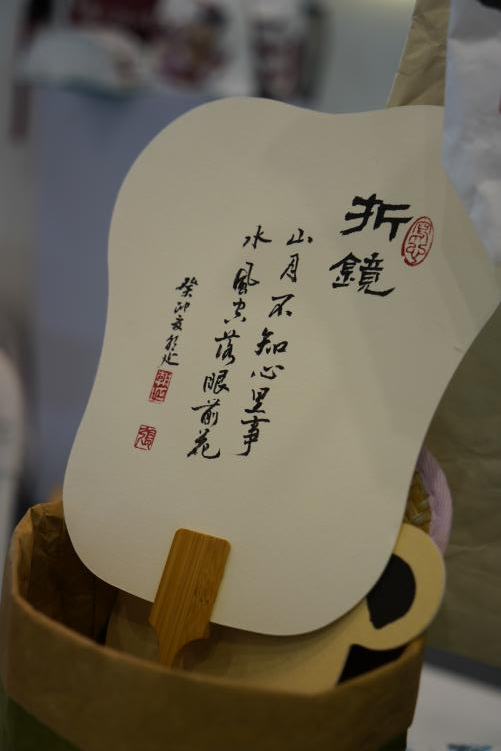 折鏡
山月不知心里事
水風空落眼前花
癸卯夏於北
張